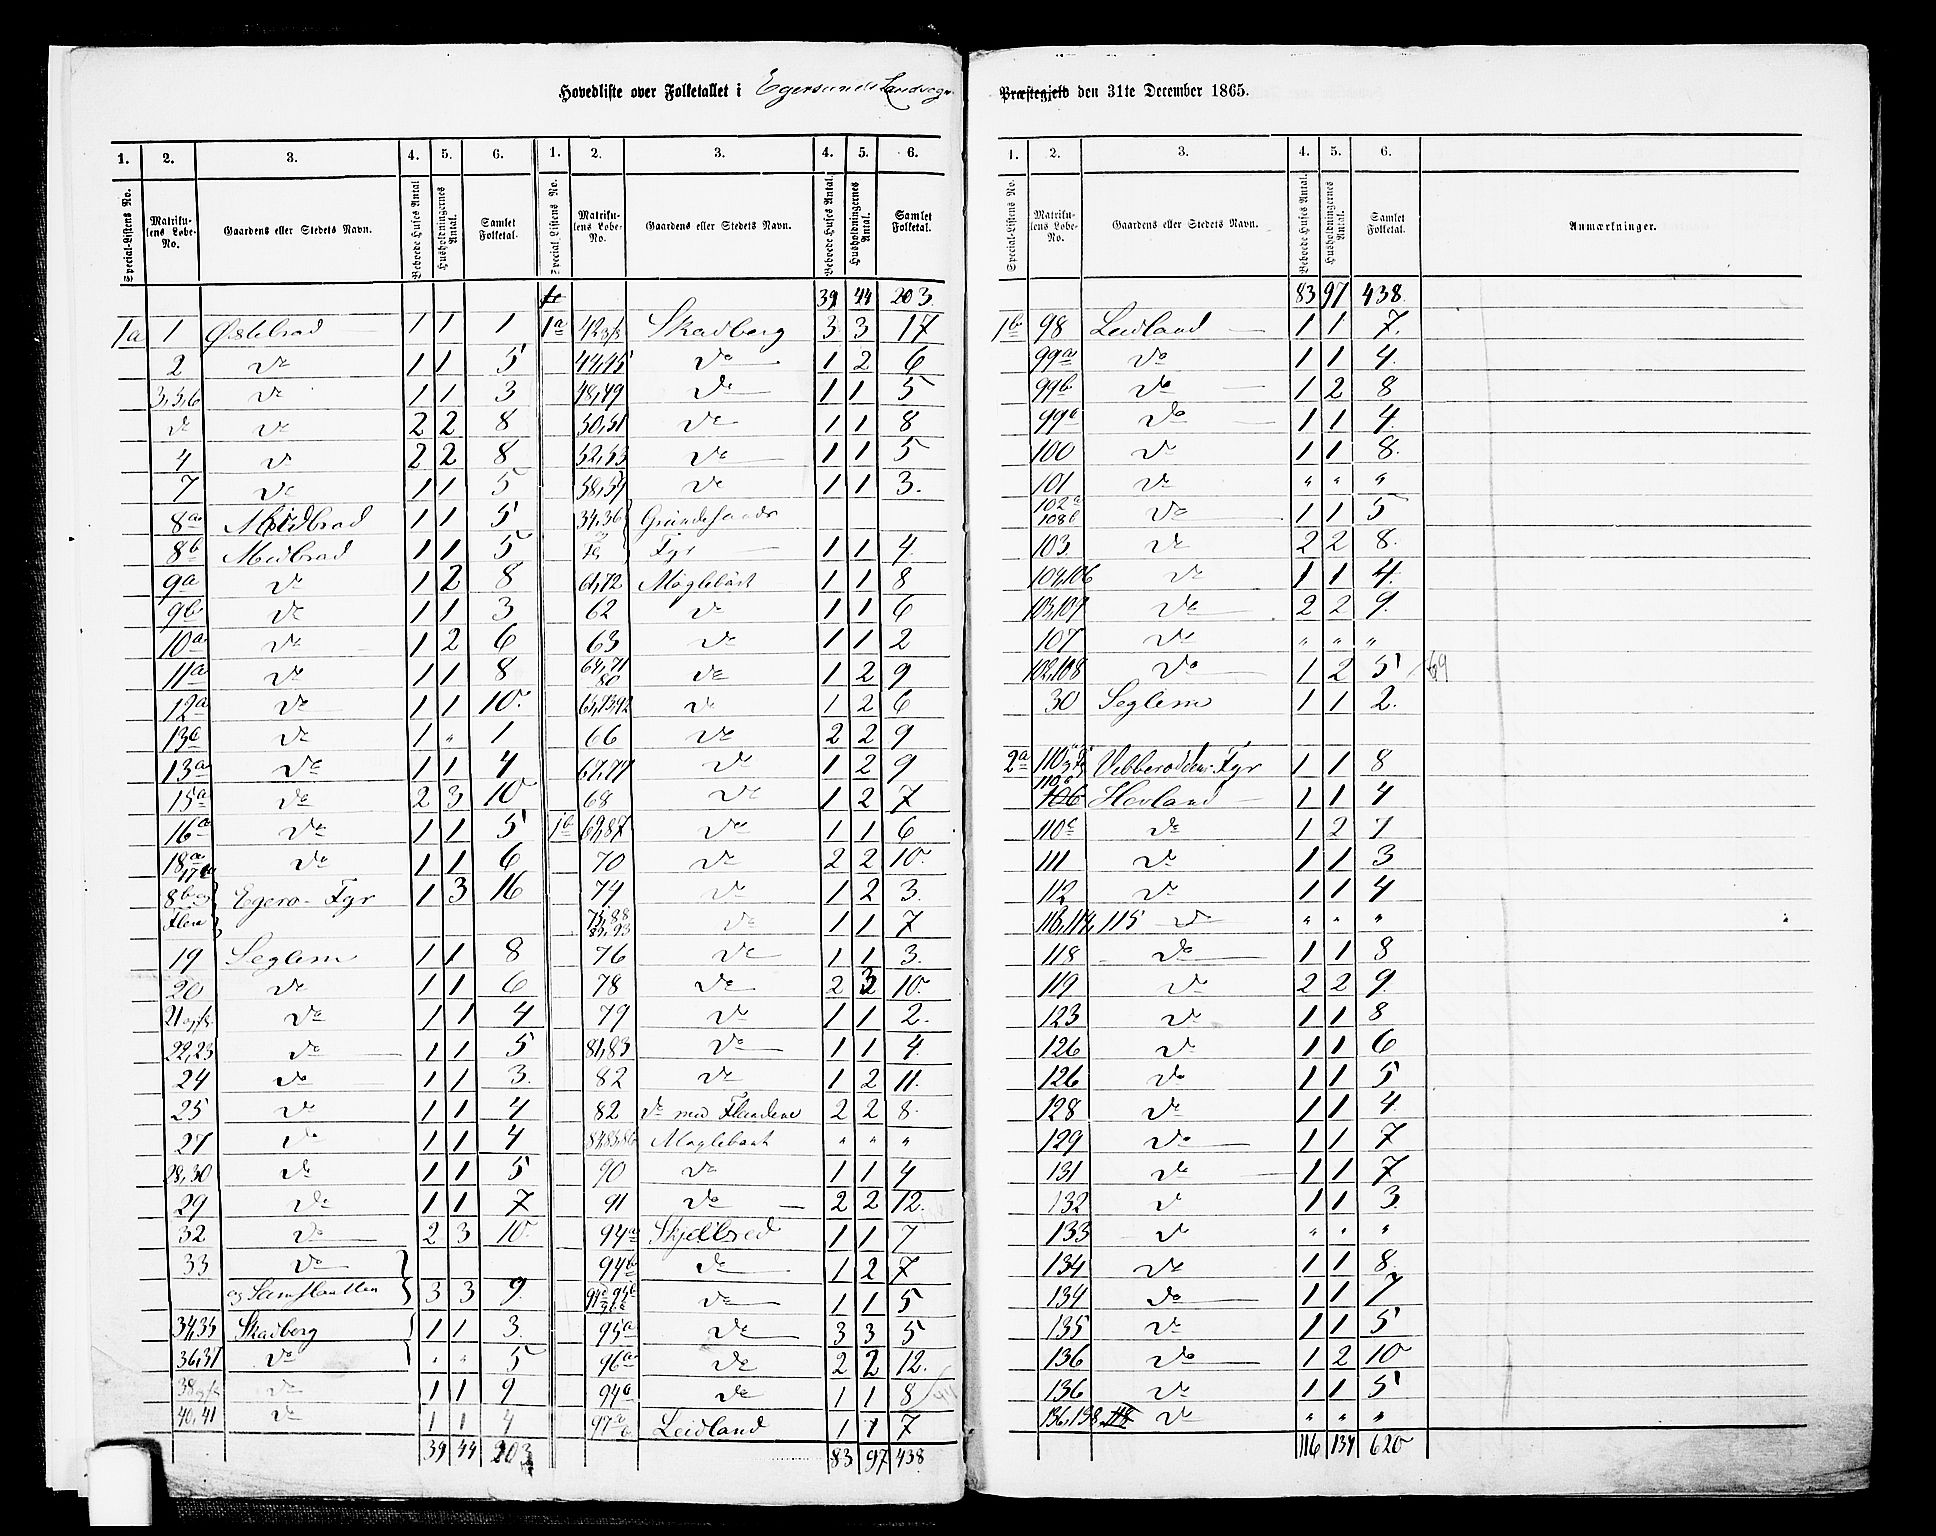 Hovedliste over Folketallet i Egersunds Landsogn Præstegjeld den 31te December 1865.
1. 2. 3. 4. 5. 6. 1. 2. 3. 4. 5. 6.
Special-Listens No. Matrikulens Løbe-No. Gaardens eller Stedets Navn. Beboede Huses Antal Husholdningernes Antal. Samlet Folketal. Special Listens No. Matrikulens Løbe-No. Gaardens eller Stedets Navn. Beboede Huses Antal. Husholdningernes Antal. Samlet Folketal.
39 44 203.
1a 1 Østebrad 1 1 1
2 do 1 1 5
3,5,6 do 1 1 3
do do 2 2 8
4 do 2 2 8
7 do 1 1 5
8a Midbrad 1 1 5
8b Midbrad 1 1 5
9a do 1 2 8
9b do 1 1 3
10a do 1 2 6
11a do 1 1 8
12a do 1 1 10
13a do 1 " 1
13a do 1 1 4
15a do 2 3 10
16a do 1 1 5
18a 17a do 1 1 6
8b og Flere Egerø Fyr 1 3 16
19 Seglem 1 1 8
20 do 1 1 6
21 do 1 1 4
22,23 do 1 1 5
24 do 1 1 3.
25 do 1 1 4
27 do 1 1 4
28,30 do 1 1 5
29 do 1 1 7
32 do 2 3 10
33 do
og 3 3 9
34,35 Skadberg 1 1 3.
36,37 do " " 5
38 do 1 1 9
40,41 do 1 1 4
39 44 203
1a 42 Skadberg 3 3 17
44,45 do 1 2 6
48,49 do 1 1 5
50,51 do 1 1 8
52,53 do 1 1 5
58,59 do 1 1 3.
34,36 Grundesunds
Fyr 1 1 4.
61,72 Møglebøst 1 1 8
62 do 1 1 6
63 do 1 1 2
64,71 80 do 1 2 9
do 1 2 6
66 do 2 2 9
67,77 do 1 2 9
68 do 1 2 7
1b 69,87 do 1 1 6
70 do 2 2 10.
74 do 1 2 3.
do 1 1 7
76 do 1 1 3.
78 do 2 10.
79 do 1 1 2.
81,83 do 1 1 4.
82 do 1 2 11.
82 do med 2 2 8.
Møglebøst " " "
90 do 1 1 4
91 do 2 2 12.
94a Skjelbred 1 1 7
94b do 1 2 7
do 1 1 5
95a do 3 3 5
96a do 2 2 12.
94a do 1 1 8
97a b Leidland 1 1 7
83 97 438
1. 2. 3. 4. 5. 6.
Special-Listens No. Matrikulens Løbe-No. Gaardens eller Stedets Navn. Beboede Huses Antal. Husholdningernes Antal. Samlet Folketal. Anmærkninger.
83 97 438.
1b 98 Leidland 1 1 7.
99a do 1 1 4.
99b do 1 2 8
99a do 1 1 4.
100 do 1 1 8.
101 do " " "
102a 108b do 1 1 5
103. do 2 2 8.
104,106 do 1 1 4.
105,109 do 2 2 9.
107 do " " "
102,108 do 1 2 5 69
30 Seglem 1 1 2.
2a 110 Vibberoddens Fyr 1 1 8
110 106 Hovland 1 1 4
110c do 1 2 7
111 do 1 1 3
112 do 1 1 4
113,114,115 do " " "
118 do 1 1 3
119 do 2 2 9.
123 do 1 1 8
126 do 1 1 6
126 do 1 1 5
128 do 1 1 4.
129 do 1 1 7
131 do 1 1 7
132 do 1 1 3.
133 do " " "
134 do 1 1 8.
134 do 1 1 7
135 do 1 1 5
136 do 1 2 10
136 do 1 1 5
136,138 do " " "
116 134 620